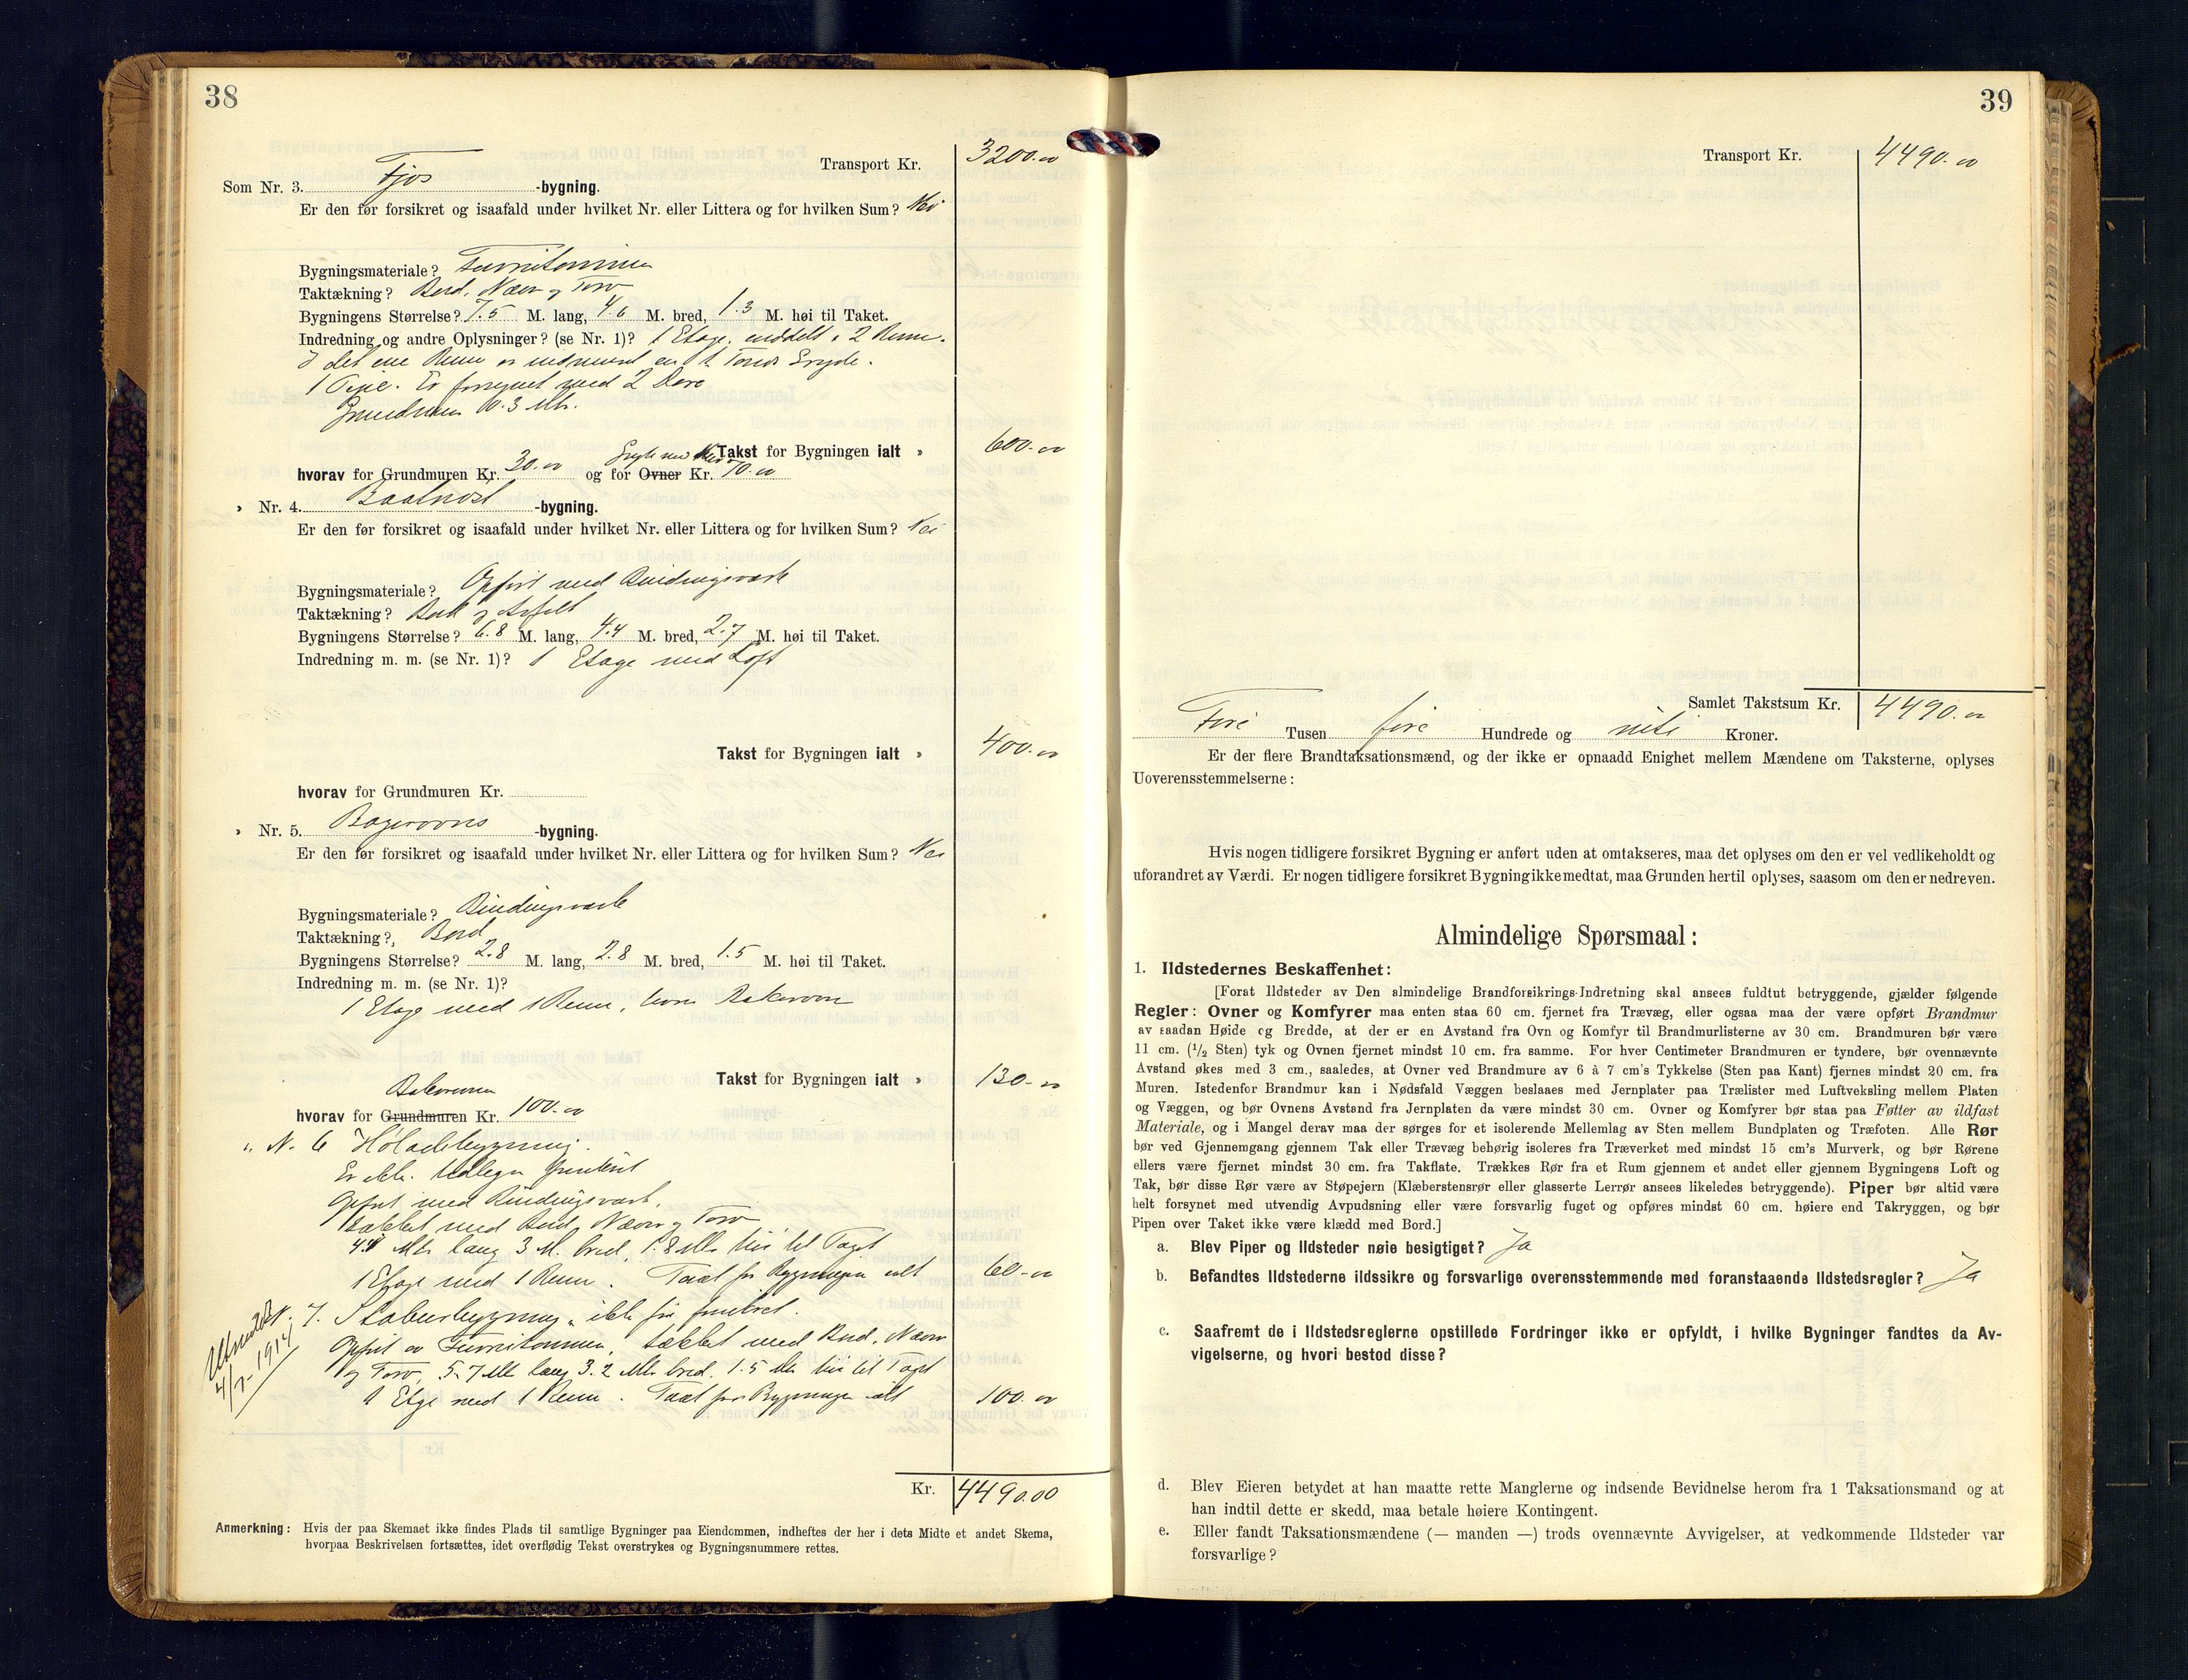 38
Transport Kr. 3200.00
Som Nr. 3. Fjøs -bygning.
Er den før forsikret og isaafald under hvilket Nr. eller Littera og for hvilken Sum? Nei
Bygningsmateriale? Furutømmer
Taktækning? Bord, Næver og Torv
Bygningens Størrelse? 7.5 M. lang, 4.6 M. bred, 1.3 M. høi til Taket.
Indredning og andre Oplysninger? (se Nr. 1)? 1 Etage, inddelt i 2 Rum.
I det ene Rum er indmuret en 1 Gryde.
1 Pipe. Er forsynet med 2 Døre
Grundmur 0.3 Mtr.
Takst for Bygningen ialt » 600.00
hvorav for Grundmuren Kr. 30.00 og for Ovner Kr. 70.00
» Nr. 4. Baatnøst -bygning.
Er den før forsikret og isaafald under hvilket Nr. eller Littera og for hvilken Sum? Nei
Bygningsmateriale? Opført med Bindingsverk
Taktækning? Bord og Asfalt
Bygningens Størrelse? 6.8 M. lang, 4.4 M. bred, 2.7 M. høi til Taket.
Indredning m. m. (se Nr. 1)? 1 Etage med Loft
Takst for Bygningen ialt » 400.00
hvorav for Grundmuren Kr.
» Nr. 5. Bagerovns -bygning.
Er den før forsikret og isaafald under hvilket Nr. eller Littera og for hvilken Sum? Nei
Bygningsmateriale? Bindingsverk
Taktækning?, Bord
Bygningens Størrelse? 2.8 M. lang, 2.8 M. bred, 1.5 M. høi til Taket.
Indredning m. m. (se Nr. 1)?
1 Etage med 1 Rum, hvori Bakerovn
Takst for Bygningen ialt » 130.00
Bakerovnen
hvorav for Grundmuren Kr. 100.00
" N. 6 Høladebygning.
Er ikke tidligere forsikret
Opført med Bindingsverk,
tækket med Bord, Næver og Torv
4.4 Mtr lang 3 M. bred, 1.8 Mtr høi til Taget
1 Etage med 1 Rum. Taxt for Bygningen ialt 60.00
N. 7. Stabursbygning, ikke før forsikret.
Opført av Furutømmer, tækket med Bord, Næver
og Torv, 5.7 Mtr lang 3.2 Mtr bred, 1.5 Mtr høi til Taget
1 Etge med 1 Rum. Taxt for Bygningen ialt 100.00
Utmeldt
4/7-1914
Kr. 4490.00
Anmerkning: Hvis der paa Skemaet ikke findes Plads til samtlige Bygninger paa Eiendommen, indheftes der her i dets Midte et andet Skema,
hvorpaa Beskrivelsen fortsættes, idet overflødig Tekst overstrykes og Bygningsnummere rettes.
39
Transport Kr. 4490.00
Samlet Takstsum Kr. 4490.00
Fire Tusen fire Hundrede og niti Kroner.
Er der flere Brandtaksationsmænd, og der ikke er opnaadd Enighet mellem Mændene om Taksterne, oplyses
Uoverensstemmelserne:
Hvis nogen tidligere forsikret Bygning er anført uden at omtakseres, maa det oplyses om den er vel vedlikeholdt og
uforandret av Værdi. Er nogen tidligere forsikret Bygning ikke medtat, maa Grunden hertil oplyses, saasom om den er nedreven.
Almindelige Spørsmaal:
1. Ildstedernes Beskaffenhet:
[Forat Ildsteder av Den almindelige Brandforsikrings-Indretning skal ansees fuldtut betryggende, gjælder følgende
Regler: Ovner og Komfyrer maa enten staa 60 cm. fjernet fra Trævæg, eller ogsaa maa der være opført Brandmur
av saadan Høide og Bredde, at der er en Avstand fra Ovn og Komfyr til Brandmurlisterne av 30 cm. Brandmuren bør være
11 cm. (1/2 Sten) tyk og Ovnen fjernet mindst 10 cm. fra samme. For hver Centimeter Brandmuren er tyndere, bør ovennævnte
Avstand økes med 3 cm., saaledes, at Ovner ved Brandmure av 6 à 7 cm's Tykkelse (Sten paa Kant) fjernes mindst 20 cm. fra
Muren. Istedenfor Brandmur kan i Nødsfald Væggen beslaaes med Jernplater paa Trælister med Luftveksling mellem Platen
og Væggen, og bør Ovnens Avstand fra Jernplaten da være mindst 30 cm. Ovner og Komfyrer bør staa paa Føtter av ildfast
Materiale, og i Mangel derav maa der sørges for et isolerende Mellemlag av Sten mellem Bundplaten og Træfoten. Alle Rør
bør ved Gjennemgang gjennem Tak eller Trævæg behørig isoleres fra Træverket med mindst 15 cm's Murverk, og bør Rørene
ellers være fjernet mindst 30 cm. fra Takflate. Trækkes Rør fra et Rum gjennem et andet eller gjennem Bygningens Loft og
Tak, bør disse Rør være av Støpejern (Klæberstensrør eller glasserte Lerrør ansees likeledes betryggende). Piper bør altid være
helt forsynet med utvendig Avpudsning eller være forsvarlig fuget og opføres mindst 60 cm. høiere end Takryggen, og bør
Pipen over Taket ikke være klædd med Bord.]
a. Blev Piper og Ildsteder nøie besigtiget? Ja
b. Befandtes Ildstederne ildssikre og forsvarlige overensstemmende med foranstaaende Ildstedsregler? Ja
c. Saafremt de i Ildstedsreglerne opstillede Fordringer ikke er opfyldt, i hvilke Bygninger fandtes da Av-
vigelserne, og hvori bestod disse?
d. Blev Eieren betydet at han maatte rette Manglerne og indsende Bevidnelse herom fra 1 Taksationsmand og at
han indtil dette er skedd, maa betale høiere Kontingent.
e. Eller fandt Taksationsmændene (— manden —) trods ovennævnte Avvigelser, at vedkommende Ildsteder var
forsvarlige?